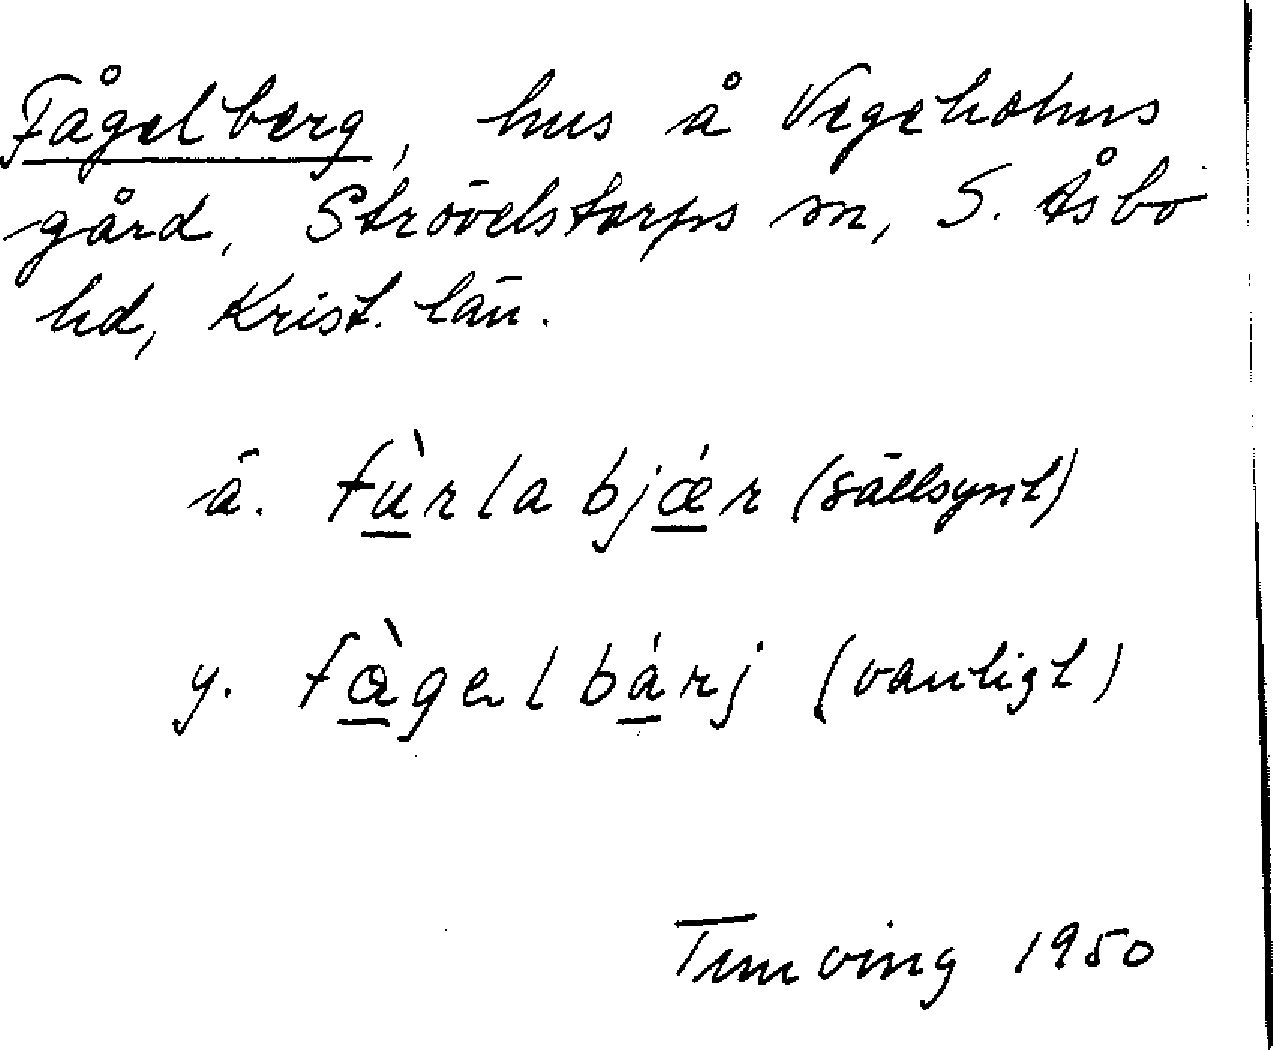 Fågelberg, hus å Vegeholms
gård, Strövelstorps sn, S. Åsbo
hd, Krist. län.
ä. fùrlabjǽr (sällsynt)
y. fàgelbárj (vanligt)
1950